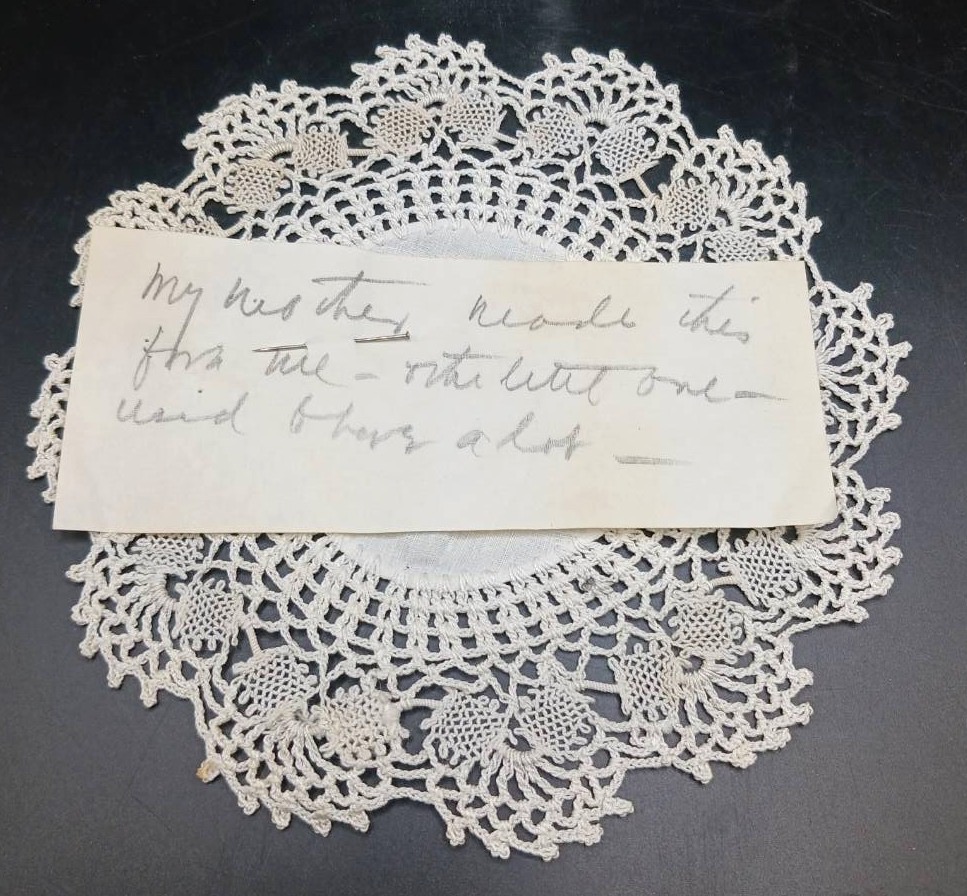 My Mother made this
for me - & the little one -
used to have a lot —